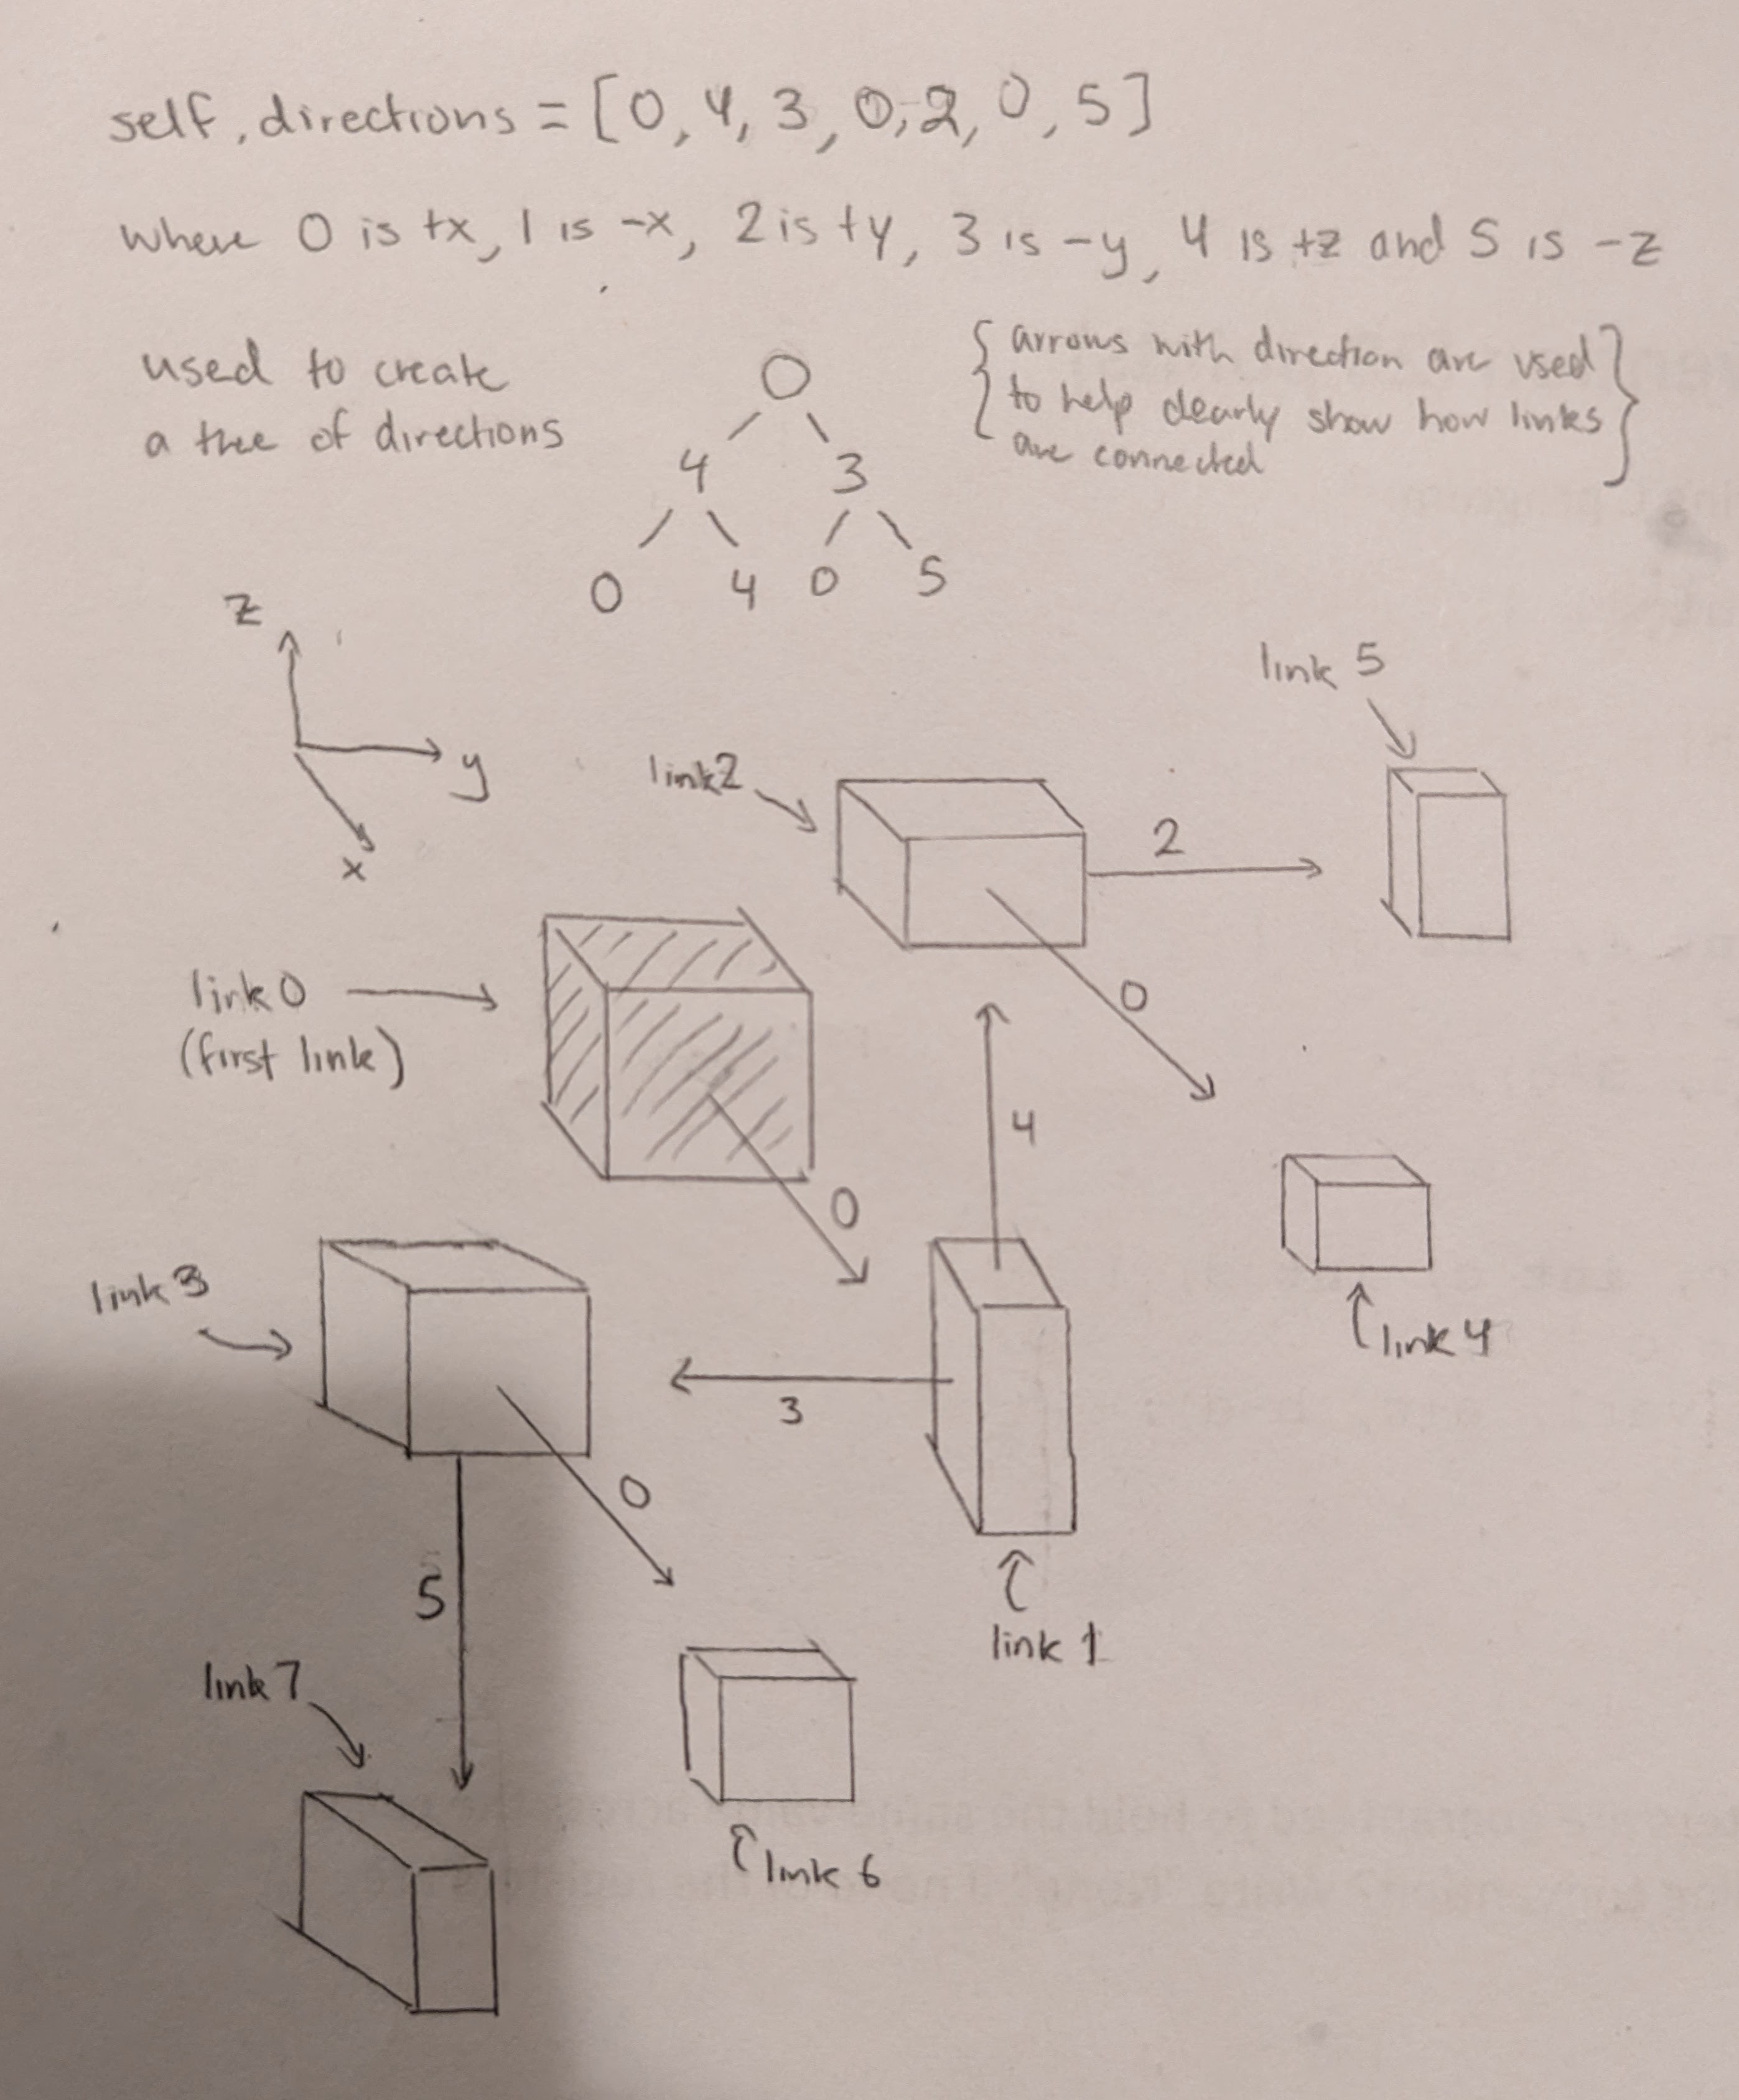 self.directions = [0, 4, 3, 0, 2, 0, 5]
where 0 is +x, 1 is -x, 2 is +y, 3 is -y, 4 is +z and 5 is -z
used to create
a tree of directions
{ arrows with direction are used
to help clearly show how links
are connected }
0
4 3
0 4 0 5
z
y
x
link 5
link2
2
link 0
(first link)
0
4
0
link 3
link 4
3
0
5
link 1
link 7
link 6